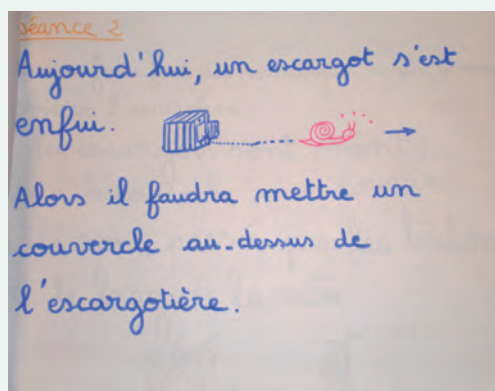 séance 2
Aujourd'hui, un escargot s'est
enfui.
Alors il faudra mettre un
couvercle au-dessus de
l'escargotière.